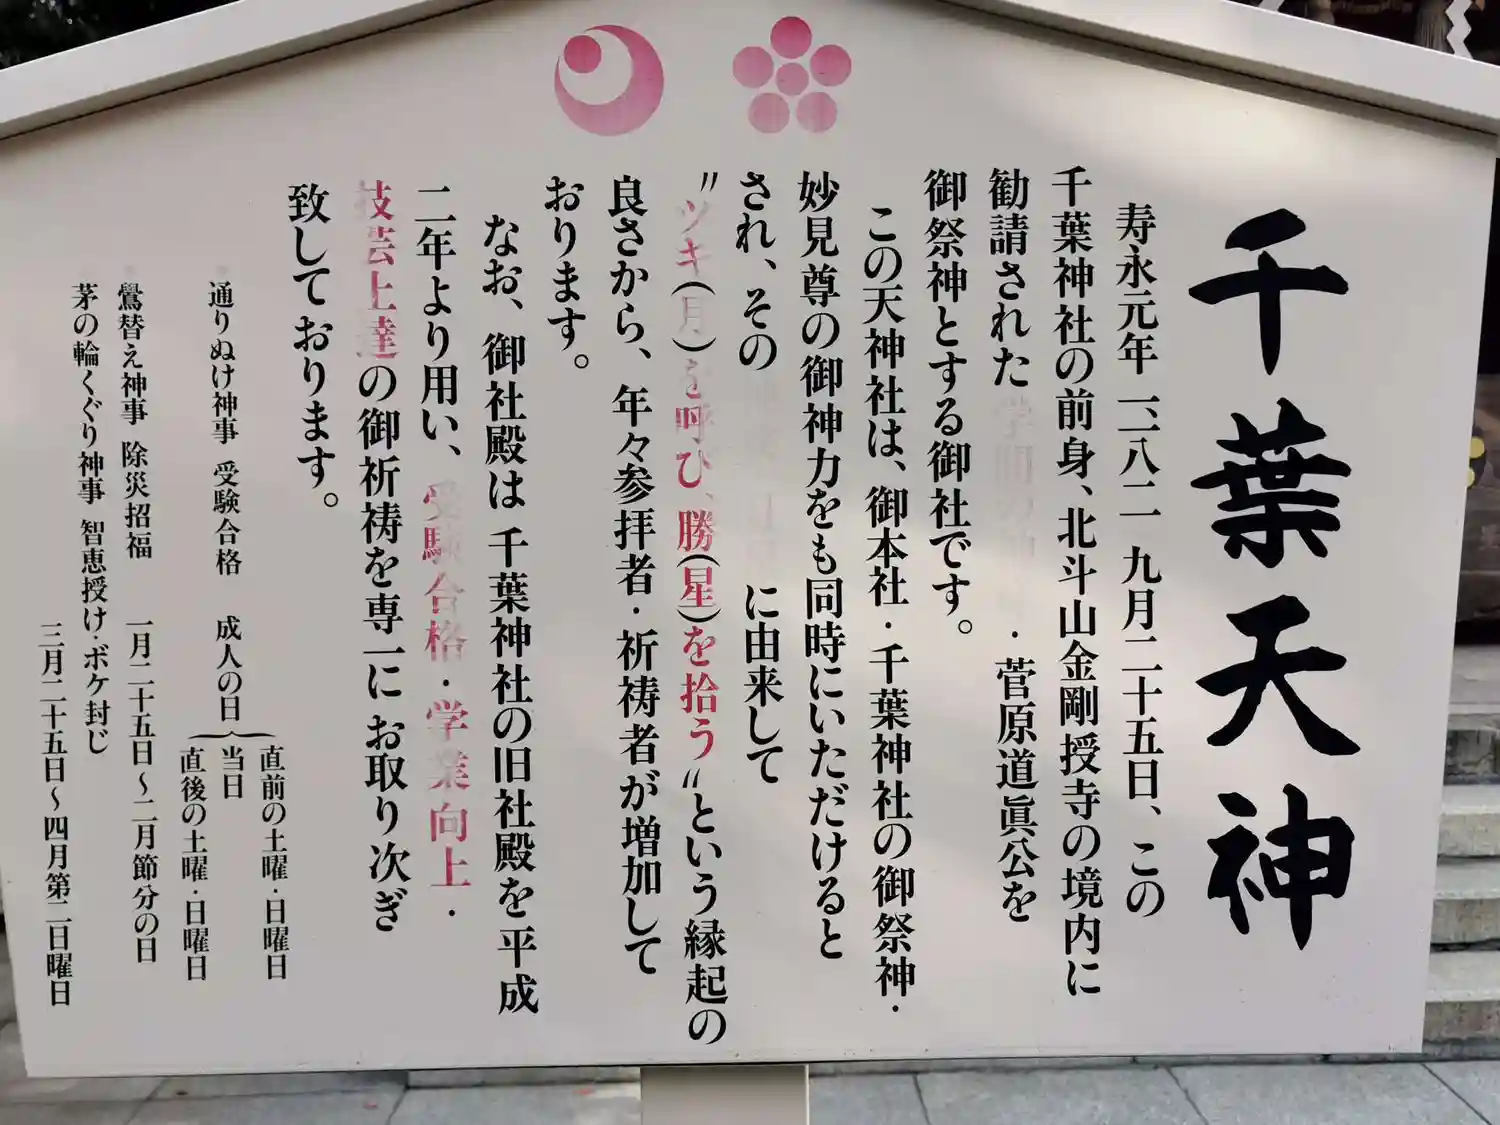 千葉天神
寿永元年一一八二 九月二十五日、この
千葉神社の前身、北斗山金剛授寺の境内に
勧請された 学問の神・菅原道眞公を
御祭神とする御社です。
この天神社は、御本社・千葉神社の御祭神・
妙見尊の御神力をも同時にいただけると
され、その に由来して
〝ツキ(月)を呼び、勝(星)を拾う〟という縁起の
良さから、年々参拝者・祈祷者が増加して
おります。
なお、御社殿は 千葉神社の旧社殿を平成
二年より用い、受験合格・学業向上・
技芸上達の御祈祷を専一に お取り次ぎ
致しております。
通りぬけ神事 受験合格 成人の日
直前の土曜・日曜日
当日
直後の土曜・日曜日
鷽替え神事 除災招福 一月二十五日～二月節分の日
茅の輪くぐり神事 智恵授け・ボケ封じ
三月二十五日～四月第二日曜日